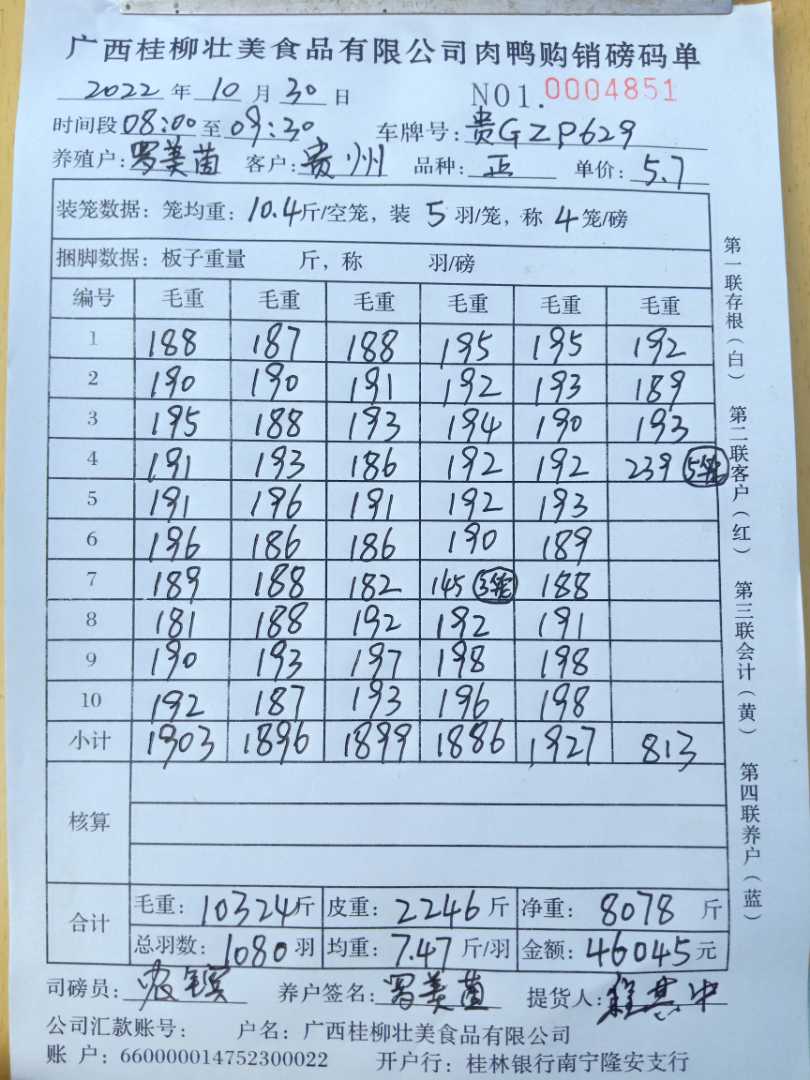 广西桂柳壮美食品有限公司肉鸭购销磅码单
2022 年 10 月 30 日 NO1. 0004851
时间段 08:00 至 09:30 车牌号: 贵GZP629
养殖户: 罗美茵 客户: 贵州 品种: 正 单价: 5.7
装笼数据: 笼均重: 10.4 斤/空笼, 装 5 羽/笼, 称 4 笼/磅
捆脚数据: 板子重量 斤, 称 羽/磅
编号 毛重 毛重 毛重 毛重 毛重 毛重
1 188 187 188 195 195 192
2 190 190 191 192 193 189
3 195 188 193 194 190 193
4 191 193 186 192 192 239 5笼
5 191 196 191 192 193
6 196 186 186 190 189
7 189 188 182 145 3笼 188
8 181 188 192 192 191
9 190 193 197 198 198
10 192 187 193 196 198
小计 1903 1896 1899 1886 1927 813
核算
合计
毛重: 10324 斤 皮重: 2246 斤 净重: 8078 斤
总羽数: 1080 羽 均重: 7.47 斤/羽 金额: 46045 元
司磅员: 养户签名: 罗美茵 提货人:
公司汇款账号: 户名: 广西桂柳壮美食品有限公司
账 户: 660000014752300022 开户行: 桂林银行南宁隆安支行
第一联存根(白) 第二联客户(红) 第三联会计(黄) 第四联养户(蓝)